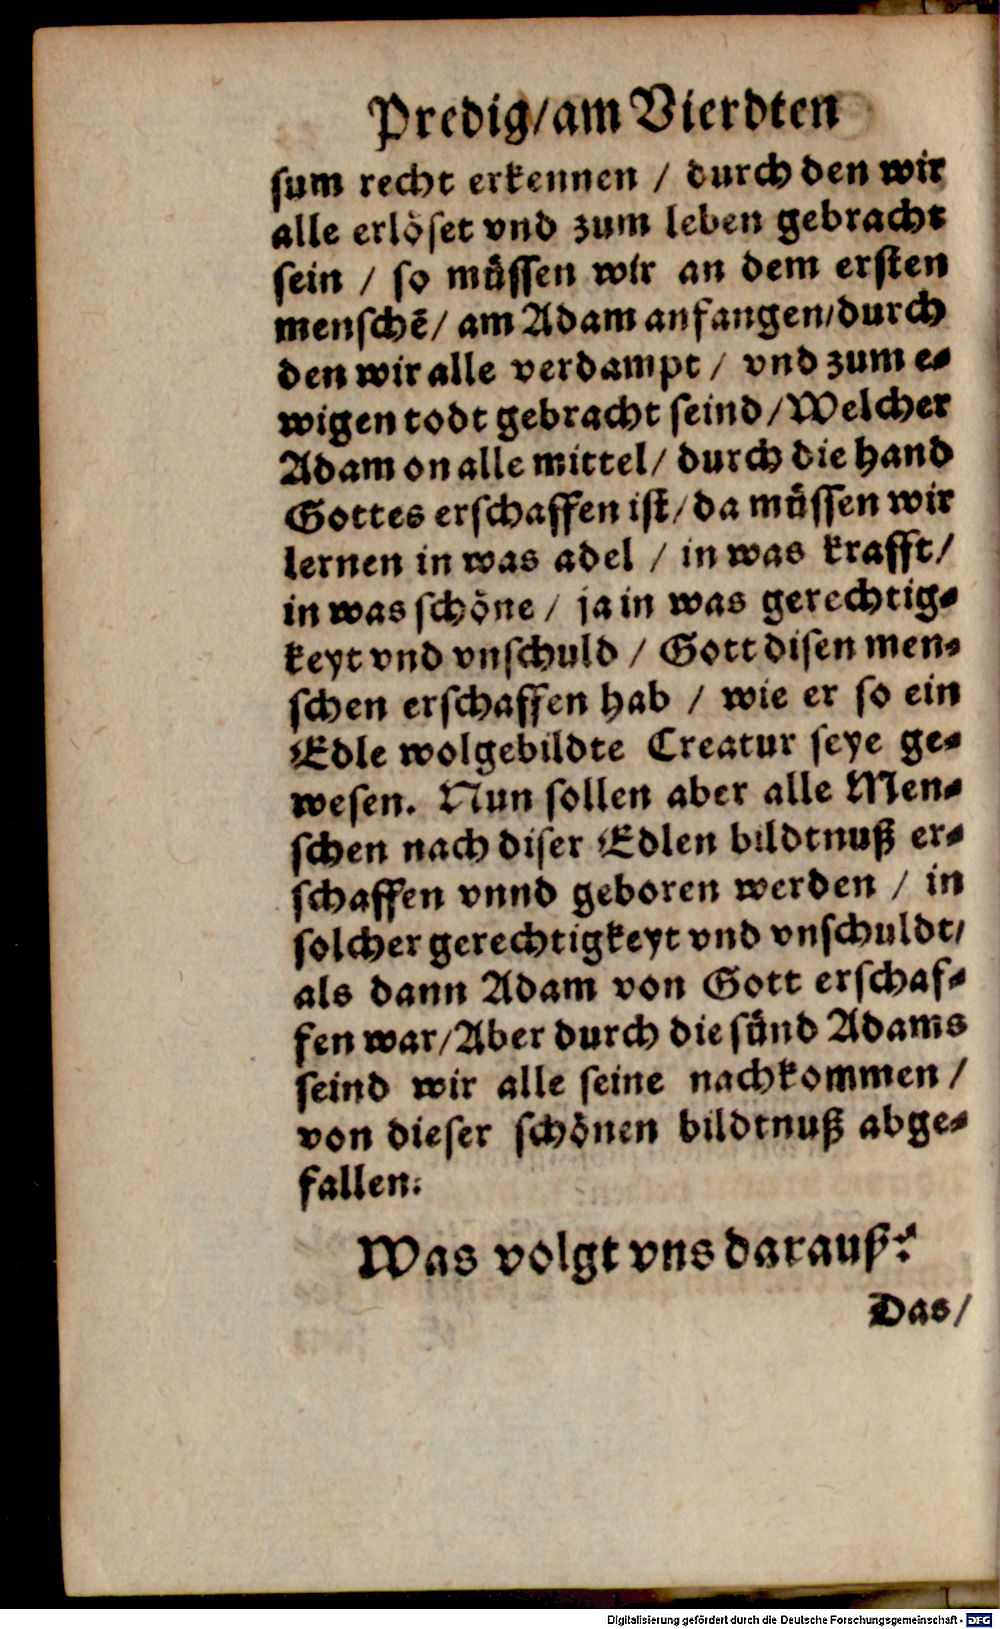 Predig/am Vierdten
sum recht erkennen / durch den wir
alle erlöset vnd zum leben gebracht
sein / so müssen wir an dem ersten
menschē/ am Adam anfangen/durch
den wir alle verdampt / vnd zum e-
wigen todt gebracht seind/Welcher
Adam on alle mittel/ durch die hand
Gottes erschaffen ist/da müssen wir
lernen in was adel / in was krafft/
in was schöne / ja in was gerechtig-
keyt vnd vnschuld / Gott disen men-
schen erschaffen hab / wie er so ein
Edle wolgebildte Creatur seye ge-
wesen. Nun sollen aber alle Men-
schen nach diser Edlen bildtnuß er-
schaffen vnnd geboren werden / in
solcher gerechtigkeyt vnd vnschuldt/
als dann Adam von Gott erschaf-
fen war/Aber durch die sünd Adams
seind wir alle seine nachkommen /
von dieser schönen bildtnuß abge-
fallen.
Was volgt vns darauß?
Das/
Digitalisierung gefördert durch die Deutsche Forschungsgemeinschaft - DFG